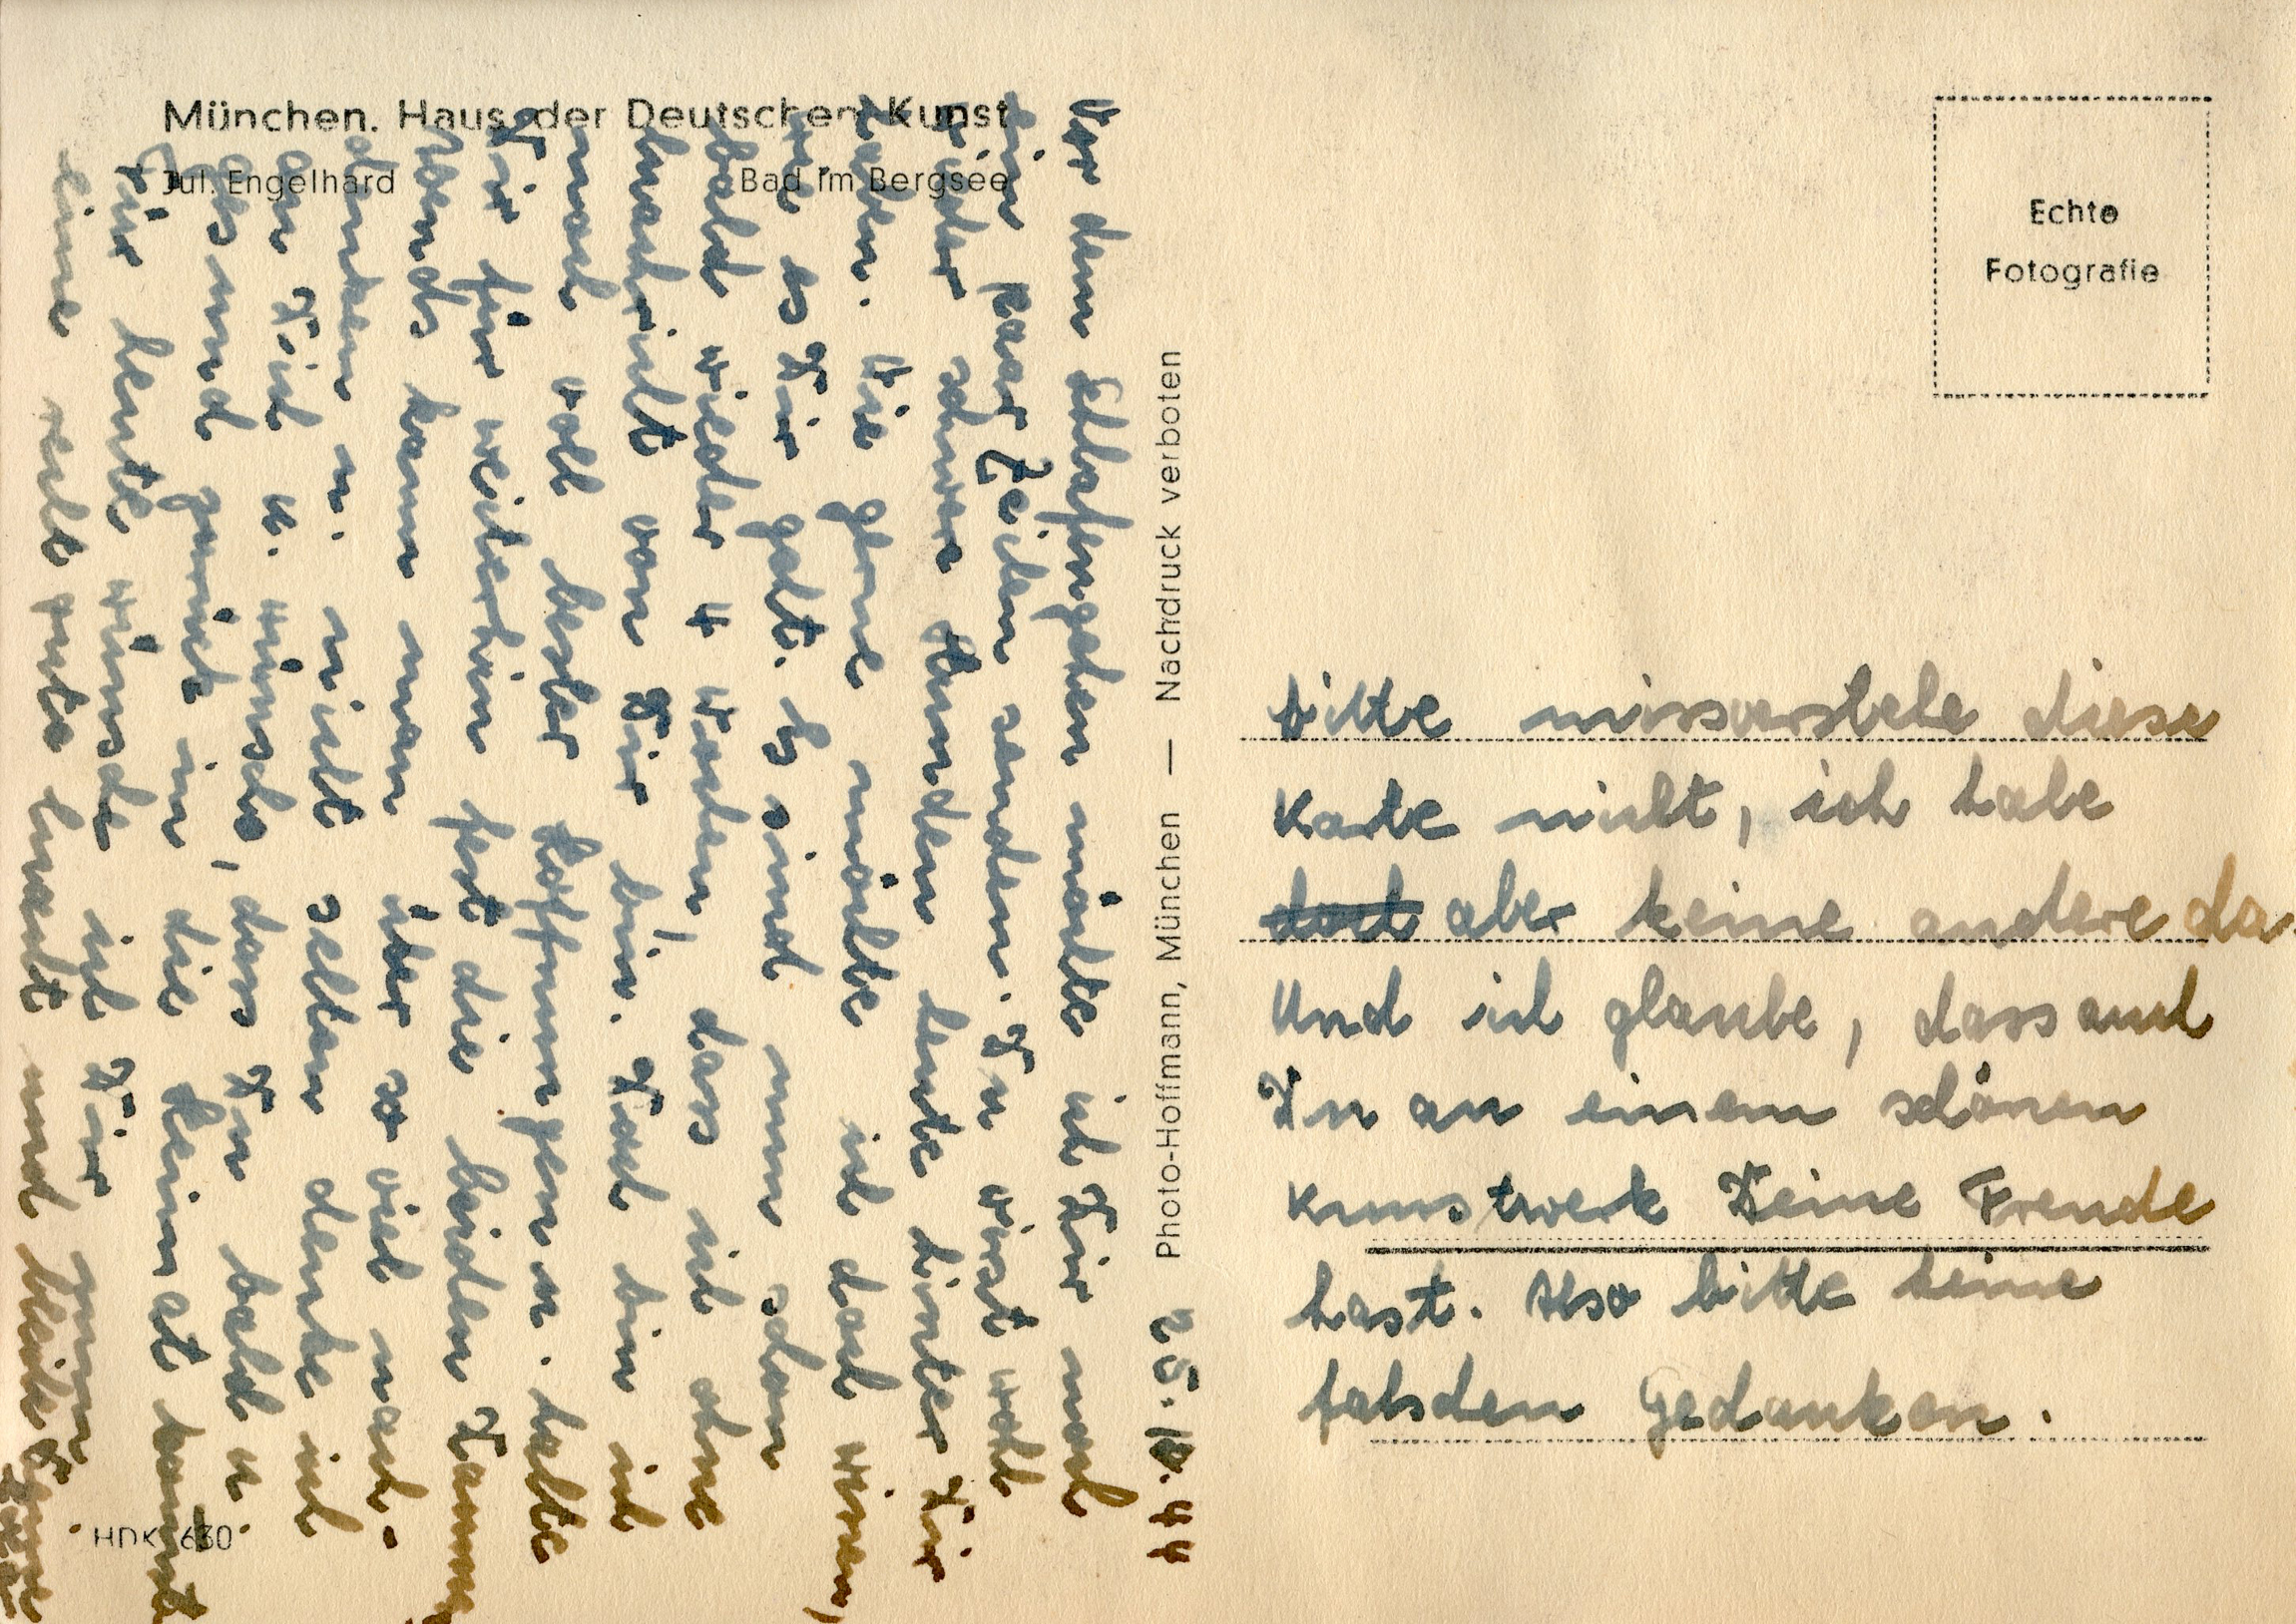 München. Haus der Deutschen Kunst
Jul. Engelhard Bad im Bergsee
25. 44
Vor dem Schlafengehen möchte ich Dir noch
ein paar Zeilen senden. Du wirst wohl
wieder schwere Stunden heute hinter Dir
haben. Wie gerne möchte ich doch wissen,
wie es Dir geht. Es sind nun schon
bald wieder 4 Wochen, dass ich ohne
Nachricht von Dir bin. Doch bin ich
noch voll bester Hoffnungen u. halte
Dir für weiterhin fest die beiden Daumen
Abends kann man über so viel nach-
denken u. nicht selten denke ich
an Dich u. wünsche, dass Du bald u.
gesund zurück in die Heimat kommst
Für heute wünsche ich Dir
eine recht gute Nacht und
HDK 630
Photo-Hoffmann, München — Nachdruck verboten
Echte
Fotografie
bitte missverstehe diese
Karte nicht, ich habe
doch aber keine andere da.
Und ich glaube, dass auch
Du an einem schönen
Kunstwerk Deine Freude
hast. Also bitte keine
falschen Gedanken.